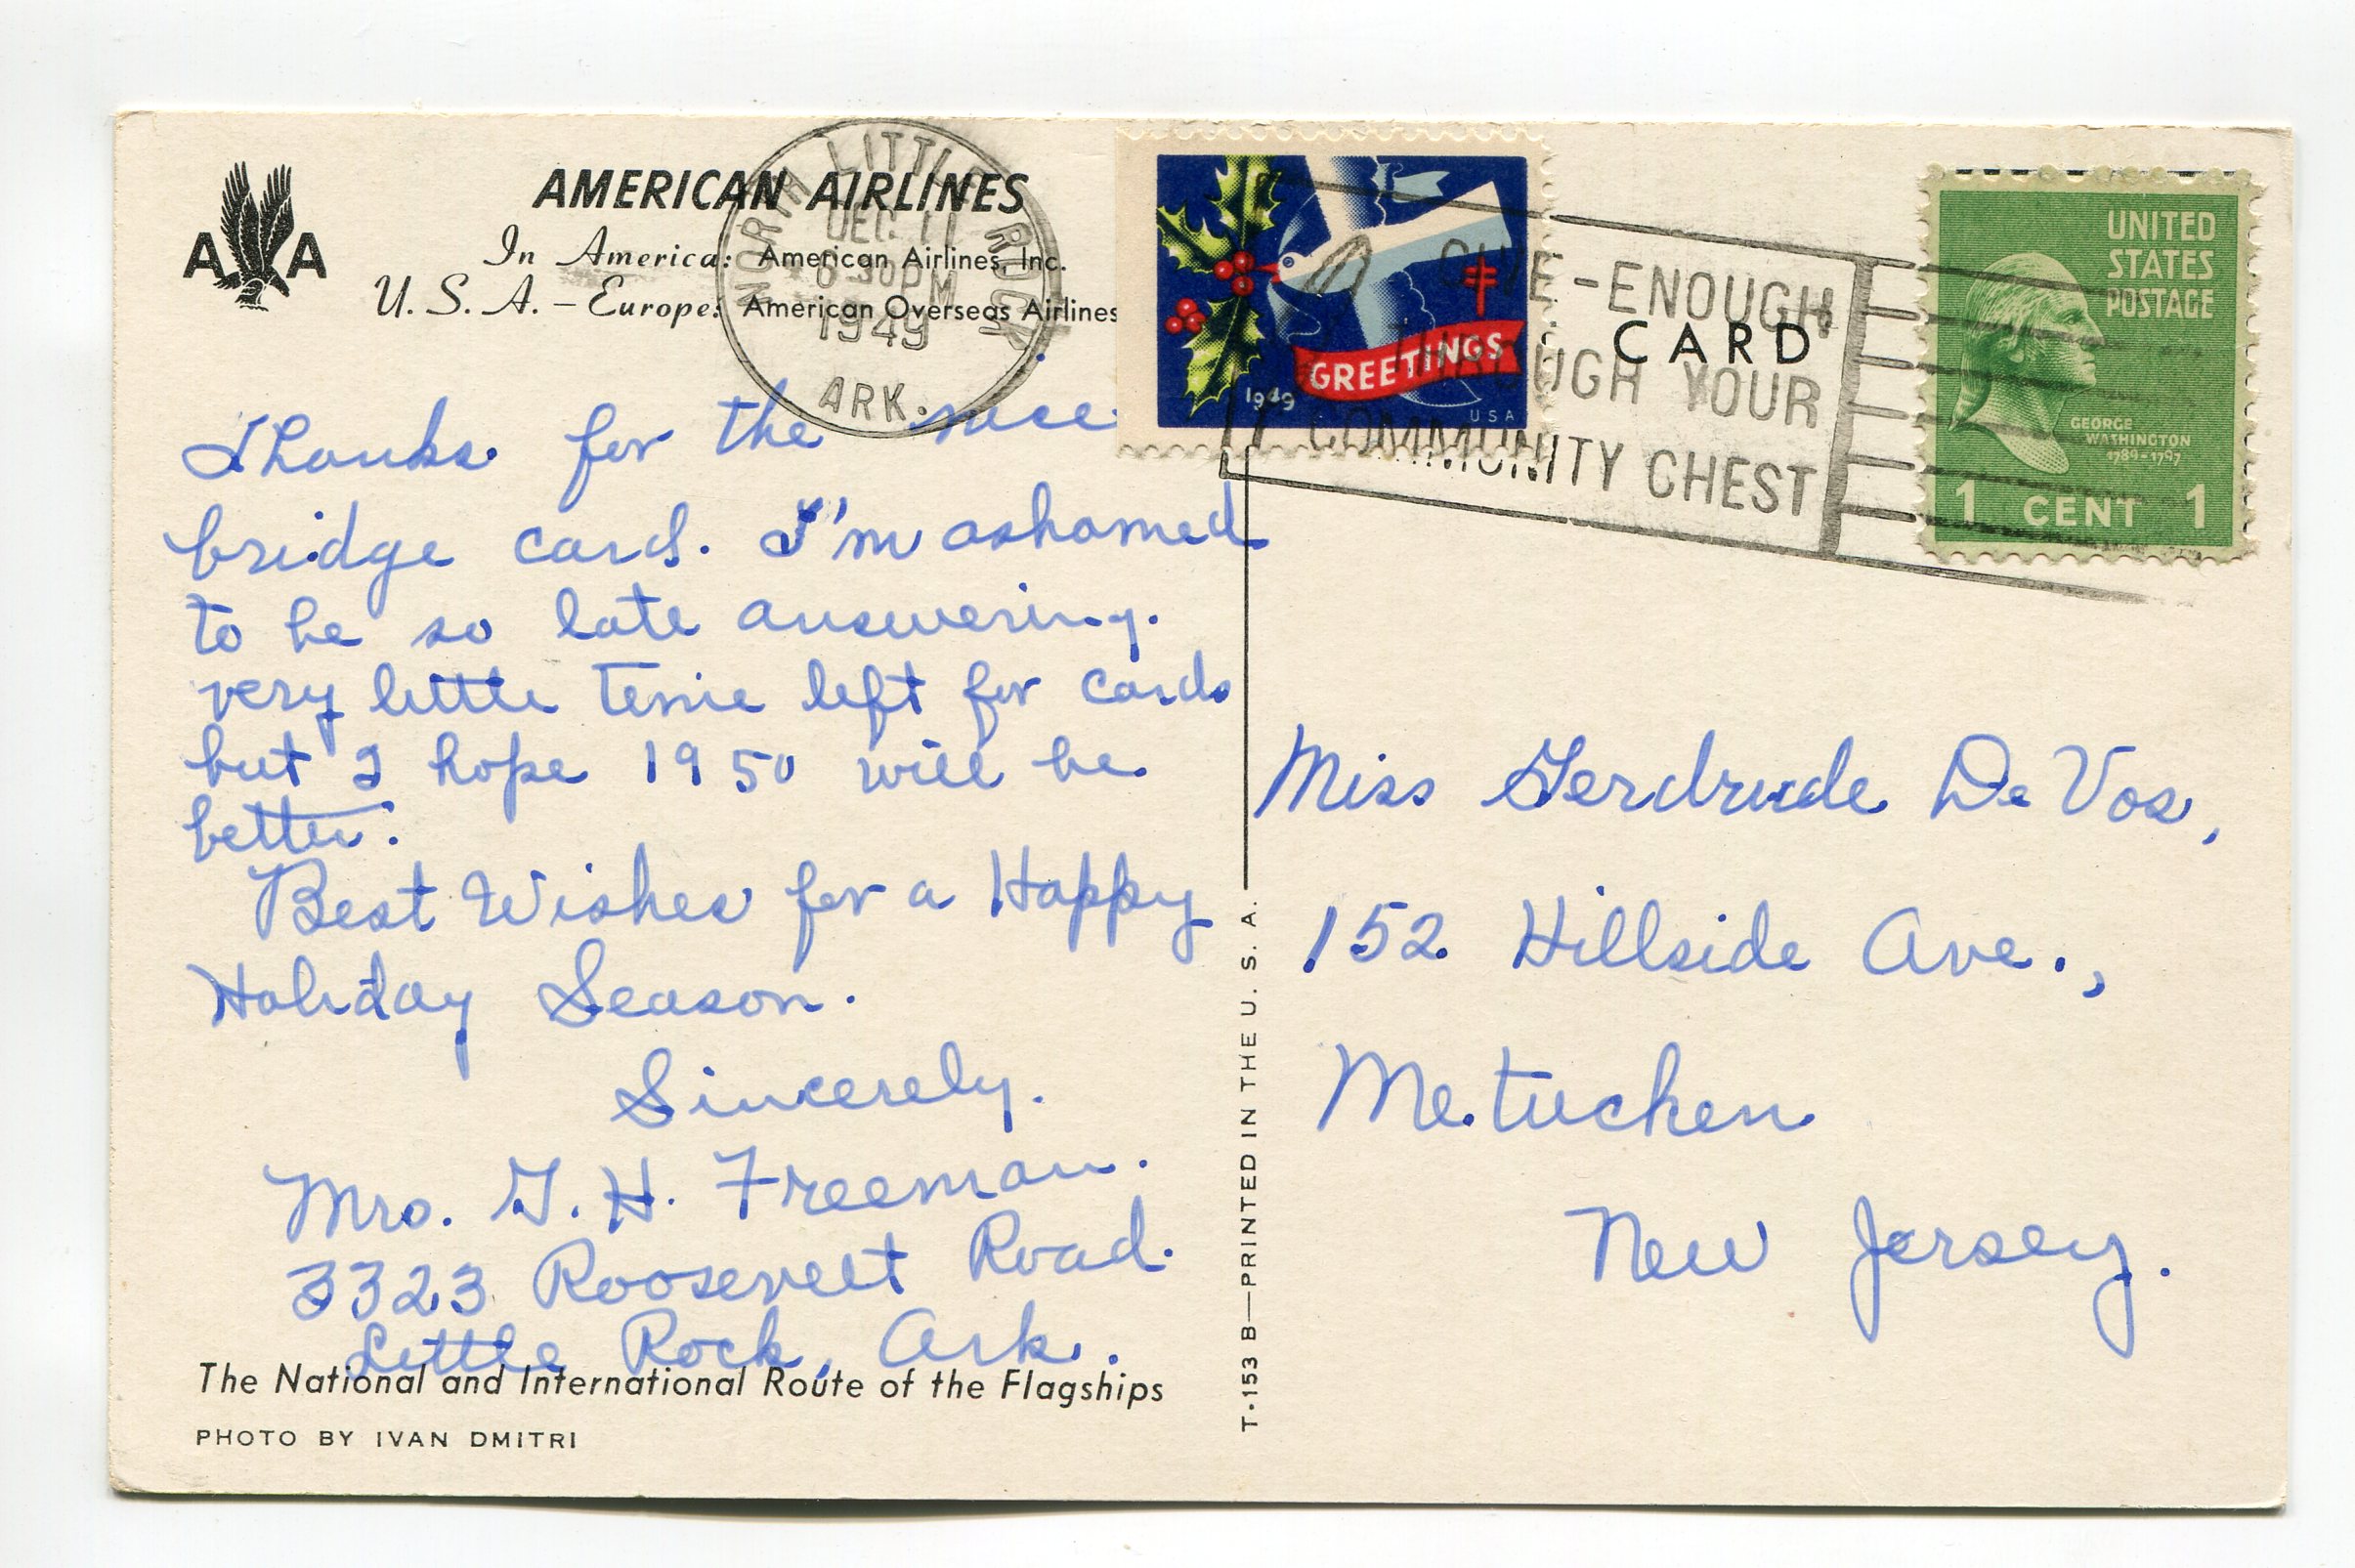 A A
AMERICAN AIRLINES
In America: American Airlines, Inc.
U.S.A. – Europe: American Overseas Airlines
NORTH LITTLE ROCK
DEC 11
6 30 PM
1949
ARK.
GREETINGS
1949
USA
GIVE-ENOUGH
THROUGH YOUR
COMMUNITY CHEST
CARD
UNITED
STATES
POSTAGE
GEORGE
WASHINGTON
1789-1797
1 CENT 1
Thanks for the nice
bridge card. I'm ashamed
to be so late answering.
very little time left for cards
but I hope 1950 will be
better.
Best Wishes for a Happy
Holiday Season.
Sincerely.
Mrs. G. H. Freeman.
3323 Roosevelt Road.
Little Rock, Ark.
The National and International Route of the Flagships
PHOTO BY IVAN DMITRI
T-153 B—PRINTED IN THE U. S. A.
Miss Gerdrude De Vos,
152 Hillside Ave.,
Metuchen
New Jersey.